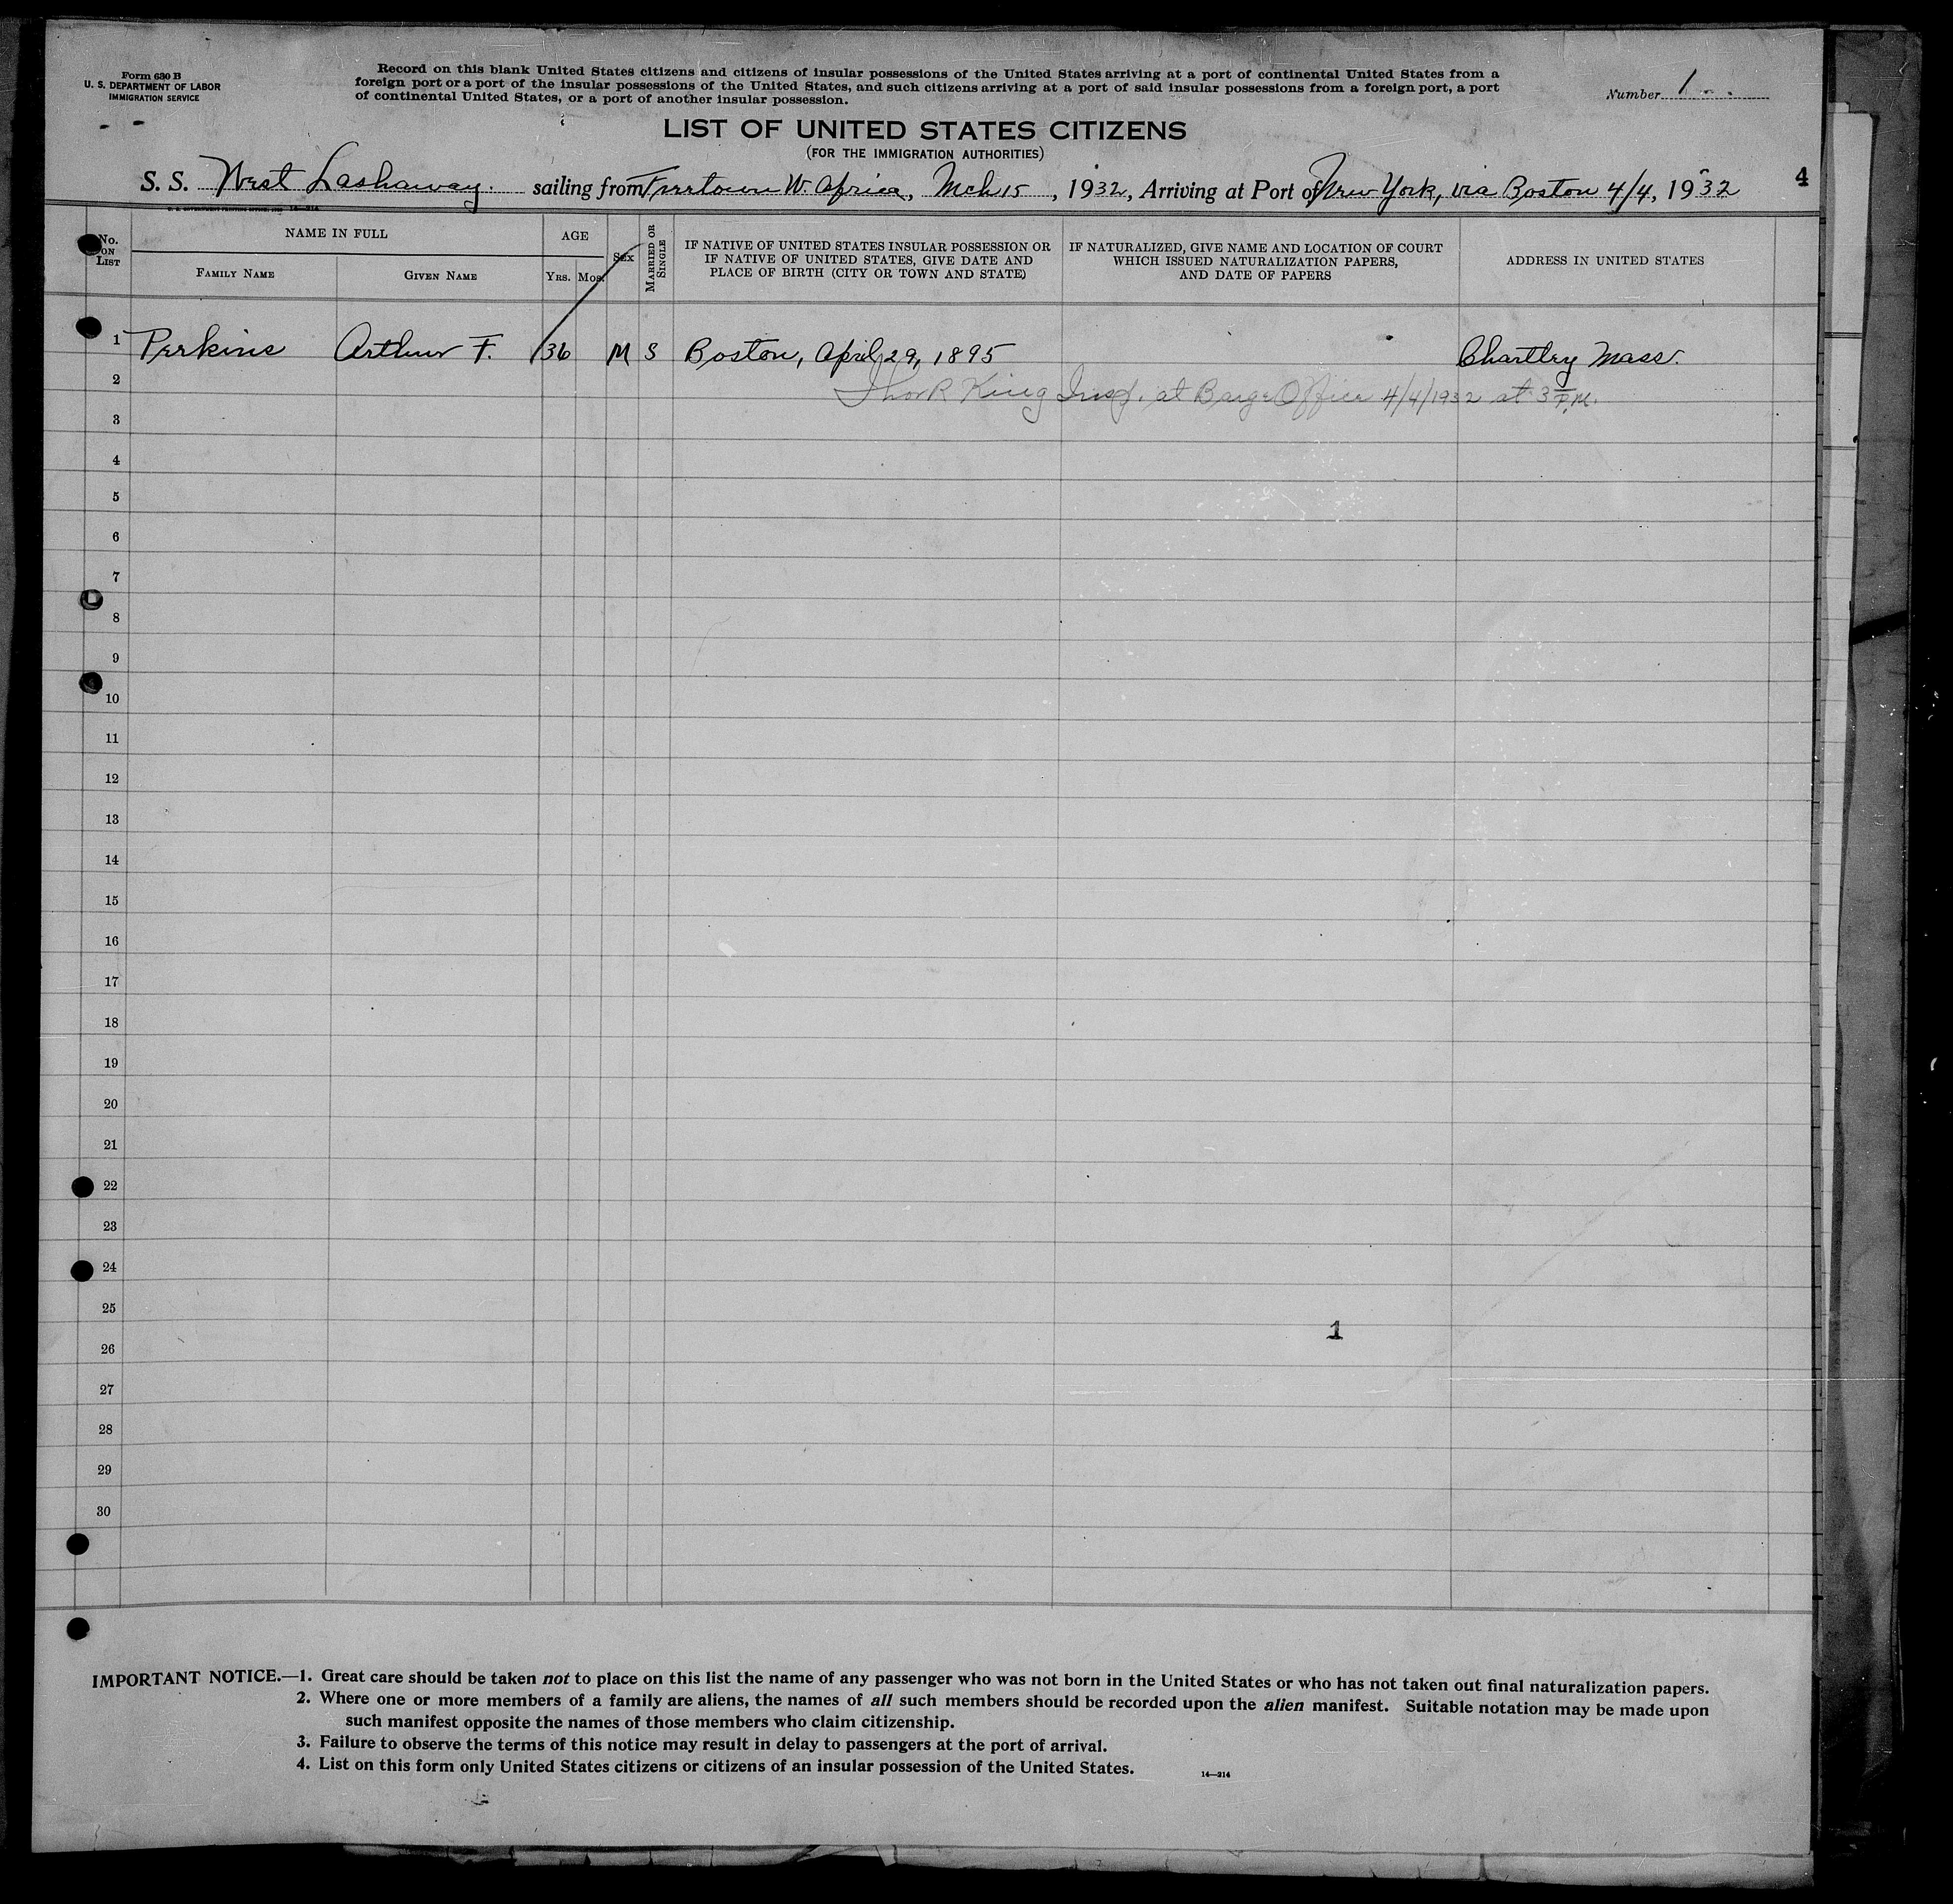 Form 630 B
U. S. DEPARTMENT OF LABOR
IMMIGRATION SERVICE
Record on this blank United States citizens and citizens of insular possessions of the United States arriving at a port of continental United States from a
foreign port or a port of the insular possessions of the United States, and such citizens arriving at a port of said insular possessions from a foreign port, a port
of continental United States, or a port of another insular possession.
Number 1
LIST OF UNITED STATES CITIZENS
(FOR THE IMMIGRATION AUTHORITIES)
S. S. West Lashaway. sailing from Freetown W. Africa, Mch 15, 1932, Arriving at Port of New York, via Boston 4/4, 1932
4
No. ON LIST
NAME IN FULL
FAMILY NAME
GIVEN NAME
AGE
YRS.
MOS.
SEX
MARRIED OR SINGLE
IF NATIVE OF UNITED STATES INSULAR POSSESSION OR
IF NATIVE OF UNITED STATES, GIVE DATE AND
PLACE OF BIRTH (CITY OR TOWN AND STATE)
IF NATURALIZED, GIVE NAME AND LOCATION OF COURT
WHICH ISSUED NATURALIZATION PAPERS,
AND DATE OF PAPERS
ADDRESS IN UNITED STATES
1 Perkins Arthur F. 36 M S Boston, April 29, 1895 Chartley Mass.
2
King Insp. at Barge Office 4/4/1932 at 3 P.M.
3
4
5
6
7
8
9
10
11
12
13
14
15
16
17
18
19
20
21
22
23
24
25
1
26
27
28
29
30
IMPORTANT NOTICE.—1. Great care should be taken not to place on this list the name of any passenger who was not born in the United States or who has not taken out final naturalization papers.
2. Where one or more members of a family are aliens, the names of all such members should be recorded upon the alien manifest. Suitable notation may be made upon
such manifest opposite the names of those members who claim citizenship.
3. Failure to observe the terms of this notice may result in delay to passengers at the port of arrival.
4. List on this form only United States citizens or citizens of an insular possession of the United States.
14—214